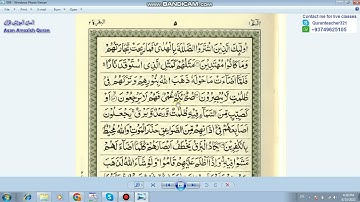 Windows Photo Viewer
WWW.BANDICAM.COM
Contact me for live classes
Quranteacher321
+93749625105
Asan Amozish Quran
۵
أُولَٰئِكَ الَّذِينَ اشْتَرَوُا الضَّلَالَةَ بِالْهُدَىٰ فَمَا رَبِحَتْ تِجَارَتُهُمْ
وَمَا كَانُوا مُهْتَدِينَ مَثَلُهُمْ كَمَثَلِ الَّذِي اسْتَوْقَدَ نَارًا
فَلَمَّا أَضَاءَتْ مَا حَوْلَهُ ذَهَبَ اللَّهُ بِنُورِهِمْ وَتَرَكَهُمْ فِي
ظُلُمَاتٍ لَا يُبْصِرُونَ صُمٌّ بُكْمٌ عُمْيٌ فَهُمْ لَا يَرْجِعُونَ أَوْ
كَصَيِّبٍ مِنَ السَّمَاءِ فِيهِ ظُلُمَاتٌ وَرَعْدٌ وَبَرْقٌ يَجْعَلُونَ
أَصَابِعَهُمْ فِي آذَانِهِمْ مِنَ الصَّوَاعِقِ حَذَرَ الْمَوْتِ وَاللَّهُ مُحِيطٌ
بِالْكَافِرِينَ يَكَادُ الْبَرْقُ يَخْطَفُ أَبْصَارَهُمْ كُلَّمَا أَضَاءَ لَهُمْ
مَشَوْا فِيهِ وَإِذَا أَظْلَمَ عَلَيْهِمْ قَامُوا وَلَوْ شَاءَ اللَّهُ لَذَهَبَ